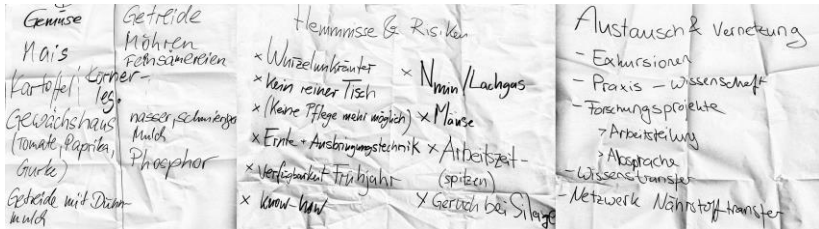 Gemüse
Mais
Kartoffel; Körner-
leg.
Gewächshaus
(Tomate, Paprika,
Gurke)
Getreide mit Dünn-
mulch
Getreide
Möhren
Feinsämereien
nasser, schmieriger
Mulch
Phosphor
Hemmnisse & Risiken
× Wurzelunkräuter
× Kein reiner Tisch
× (Keine Pflege mehr möglich)
× Ernte + Ausbringungstechnik
× Verfügbarkeit Frühjahr
× Know-how
× Nmin/Lachgas
× Mäuse
× Arbeitszeit-
(spitzen)
× Geruch bei Silage
Austausch & Vernetzung
- Exkursionen
- Praxis - Wissenschaft
- Forschungsprojekte
> Arbeitsteilung
> Absprache
- Wissenstransfer
- Netzwerk Nährstofftransfer